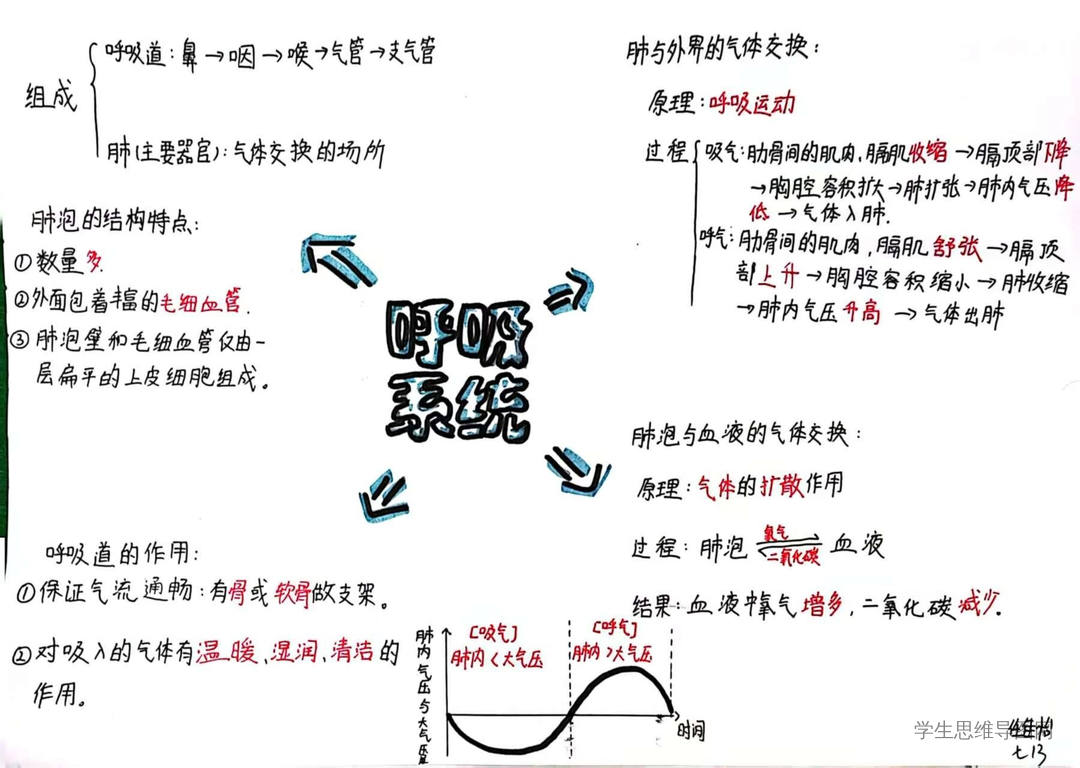 组成
呼吸道:鼻→咽→喉→气管→支气管
肺(主要器官):气体交换的场所
肺泡的结构特点:
①数量多.
②外面包着丰富的毛细血管.
③肺泡壁和毛细血管仅由一
层扁平的上皮细胞组成。
呼吸道的作用:
①保证气流通畅:有骨或软骨做支架。
②对吸入的气体有温暖、湿润、清洁的
作用。
呼吸
系统
肺与外界的气体交换:
原理:呼吸运动
过程
吸气:肋骨间的肌肉,膈肌收缩→膈顶部下降
→胸腔容积扩大→肺扩张→肺内气压降
低→气体入肺.
呼气:肋骨间的肌肉,膈肌舒张→膈顶
部上升→胸腔容积缩小→肺收缩
→肺内气压升高→气体出肺
肺泡与血液的气体交换:
原理:气体的扩散作用
过程:肺泡 氧气 二氧化碳 血液
结果:血液中氧气增多,二氧化碳减少。
肺内气压与大气压
[吸气]
肺内<大气压
[呼气]
肺内>大气压
时间
学生思维导图
七13